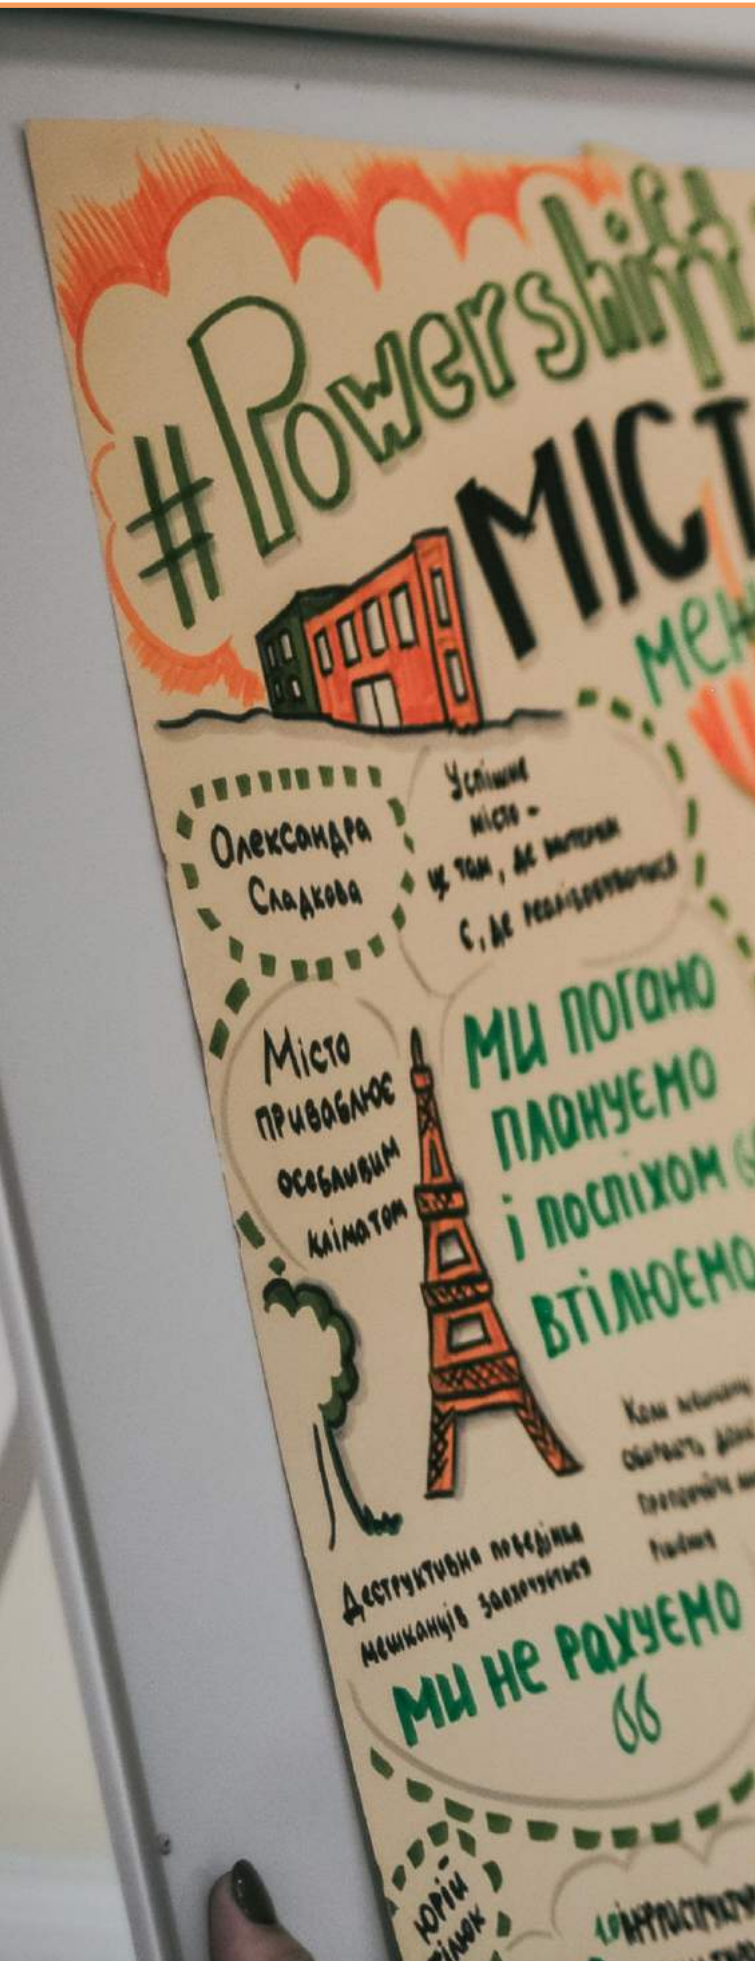 #Powershift
МІСТ
мен
Олександра
Сладкова
Успішне
місто -
це там, де
є, де реалізовуються
Місто
приваблює
особливим
кліматом
МИ ПОГАНО
ПЛАНУЄМО
і ПОСПІХОМ
ВТІЛЮЄМО
Деструктивна поведінка
мешканців заохочується
рішення
МИ НЕ РАХУЄМО
ЮРІЙ